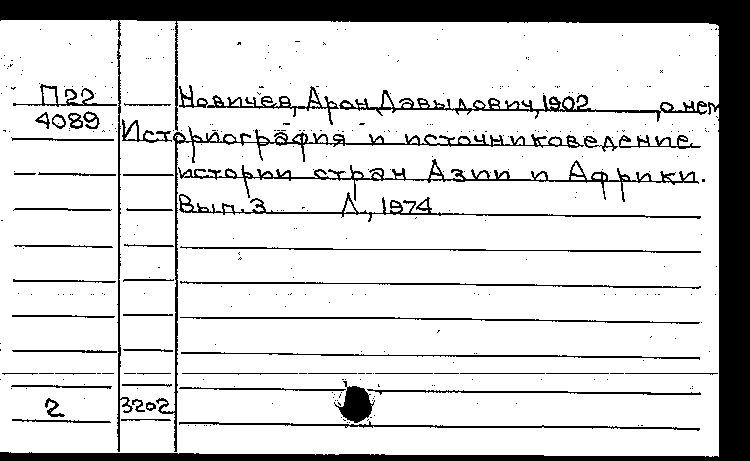 П22 Новичев, Арон Давыдович, 1902 , о нем
4089 Историография и источниковедение
истории стран Азии и Африки.
Вып. 3 Л., 1974
2 3202